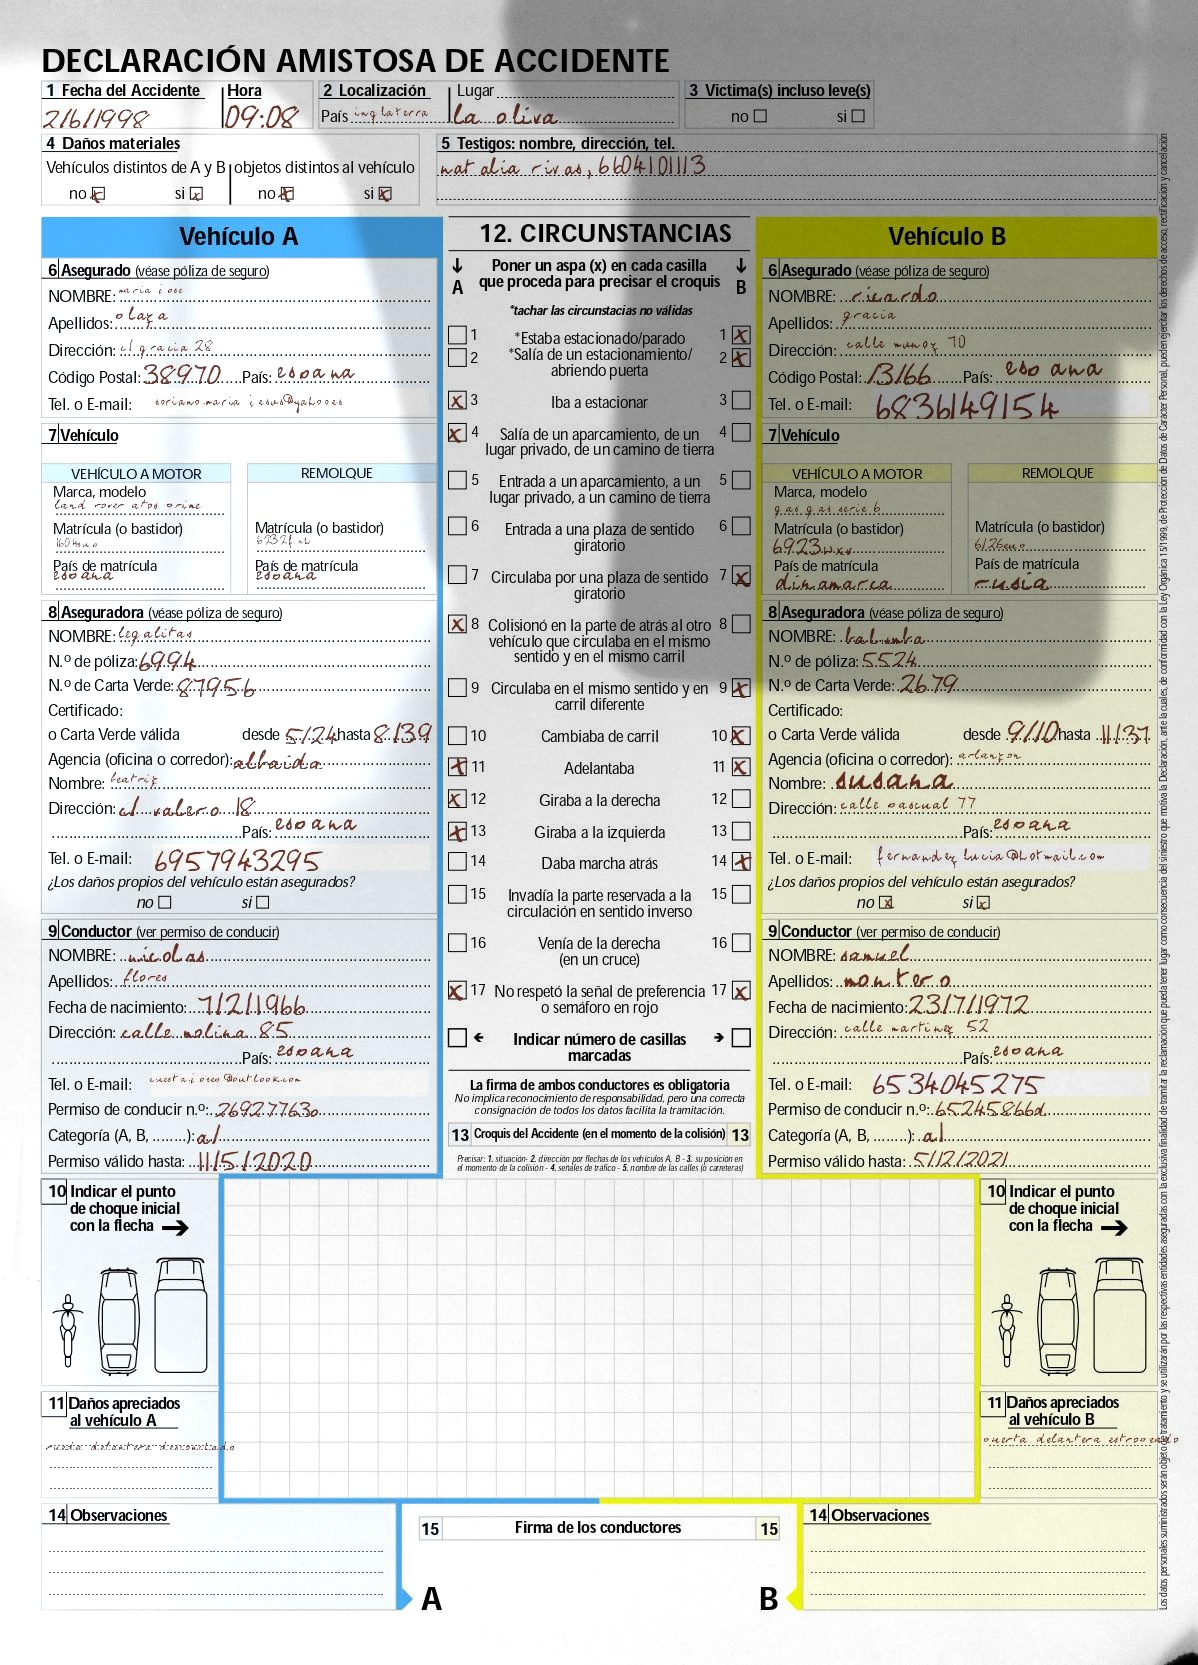 DECLARACIÓN AMISTOSA DE ACCIDENTE
1 Fecha del Accidente Hora 2 Localización Lugar 3 Victima(s) incluso leve(s)
2/6/1998 09:08 País inglaterra la oliva no si
4 Daños materiales 5 Testigos: nombre, dirección, tel.
Vehículos distintos de A y B objetos distintos al vehículo natalia rivas, 6604101113
no x si x no x si x
Vehículo A
6 Asegurado (véase póliza de seguro)
NOMBRE: maria jose
Apellidos: olaya
Dirección: cl gracia 28
Código Postal: 38970 País: espana
Tel. o E-mail: sorianomariajesus@yahooes
7 Vehículo
VEHÍCULO A MOTOR REMOLQUE
Marca, modelo
land rover atos prime
Matrícula (o bastidor) Matrícula (o bastidor)
País de matrícula País de matrícula
espana espana
8 Aseguradora (véase póliza de seguro)
NOMBRE: legalitas
N.º de póliza: 6994
N.º de Carta Verde: 87956
Certificado:
o Carta Verde válida desde 5/24 hasta 8/39
Agencia (oficina o corredor): albaida
Nombre: beatriz
Dirección: cl valero 18
País: espana
Tel. o E-mail: 6957943295
¿Los daños propios del vehículo están asegurados?
no si
9 Conductor (ver permiso de conducir)
NOMBRE: nicolas
Apellidos: flores
Fecha de nacimiento: 7/2/1966
Dirección: calle molina 85
País: espana
Tel. o E-mail: cuestajoseo@outlook.com
Permiso de conducir n.º: 269277630
Categoría (A, B, ........): a1
Permiso válido hasta: 11/5/2020
12. CIRCUNSTANCIAS
A Poner un aspa (x) en cada casilla que proceda para precisar el croquis B
*tachar las circunstacias no válidas
1 *Estaba estacionado/parado 1 x
2 *Salía de un estacionamiento/ 2 x
abriendo puerta
x 3 Iba a estacionar 3
x 4 Salía de un aparcamiento, de un 4
lugar privado, de un camino de tierra
5 Entrada a un aparcamiento, a un 5
lugar privado, a un camino de tierra
6 Entrada a una plaza de sentido 6
giratorio
7 Circulaba por una plaza de sentido 7 x
giratorio
x 8 Colisionó en la parte de atrás al otro 8
vehículo que circulaba en el mismo
sentido y en el mismo carril
9 Circulaba en el mismo sentido y en 9 x
carril diferente
10 Cambiaba de carril 10 x
x 11 Adelantaba 11 x
x 12 Giraba a la derecha 12
x 13 Giraba a la izquierda 13
14 Daba marcha atrás 14 x
15 Invadía la parte reservada a la 15
circulación en sentido inverso
16 Venía de la derecha 16
(en un cruce)
x 17 No respetó la señal de preferencia 17 x
o semáforo en rojo
Indicar número de casillas
marcadas
La firma de ambos conductores es obligatoria
No implica reconocimiento de responsabilidad, pero una correcta
consignación de todos los datos facilita la tramitación.
13 Croquis del Accidente (en el momento de la colisión) 13
Precisar: 1. situación- 2. dirección por flechas de los vehículos A, B - 3. su posición en
el momento de la colisión - 4. señales de tráfico - 5. nombre de las calles (o carreteras)
Vehículo B
6 Asegurado (véase póliza de seguro)
NOMBRE: ricardo
Apellidos: gracia
Dirección: calle munoz 10
Código Postal: 13166 País: espana
Tel. o E-mail: 6836149154
7 Vehículo
VEHÍCULO A MOTOR REMOLQUE
Marca, modelo
gas gas serie 6
Matrícula (o bastidor) Matrícula (o bastidor)
País de matrícula País de matrícula
dinamarca rusia
8 Aseguradora (véase póliza de seguro)
NOMBRE: balumba
N.º de póliza: 5524
N.º de Carta Verde: 2679
Certificado:
o Carta Verde válida desde 9/10 hasta 11/37
Agencia (oficina o corredor): arlanzon
Nombre: susana
Dirección: calle pascual 77
País: espana
Tel. o E-mail: fernandezlucia@hotmail.com
¿Los daños propios del vehículo están asegurados?
no x si x
9 Conductor (ver permiso de conducir)
NOMBRE: samuel
Apellidos: montero
Fecha de nacimiento: 23/7/1972
Dirección: calle martinez 52
País: espana
Tel. o E-mail: 6534045275
Permiso de conducir n.º: 65245866d
Categoría (A, B, ........): a1
Permiso válido hasta: 5/12/2021
10 Indicar el punto
de choque inicial
con la flecha
11 Daños apreciados
al vehículo A
rueda delantera desmontado
10 Indicar el punto
de choque inicial
con la flecha
11 Daños apreciados
al vehículo B
puerta delantera estropeado
14 Observaciones
15 Firma de los conductores 15
A B
14 Observaciones
Los datos personales suministrados serán objeto de tratamiento y se utilizarán por las respectivas entidades aseguradas con la exclusiva finalidad de tramitar la reclamación que pueda tener lugar como consecuencia del siniestro que motiva la Declaración, ante la cuales, de conformidad con la Ley Orgánica 15/1999, de Protección de Datos de Carácter Personal, pueden ejercitar los derechos de acceso, rectificación y cancelación